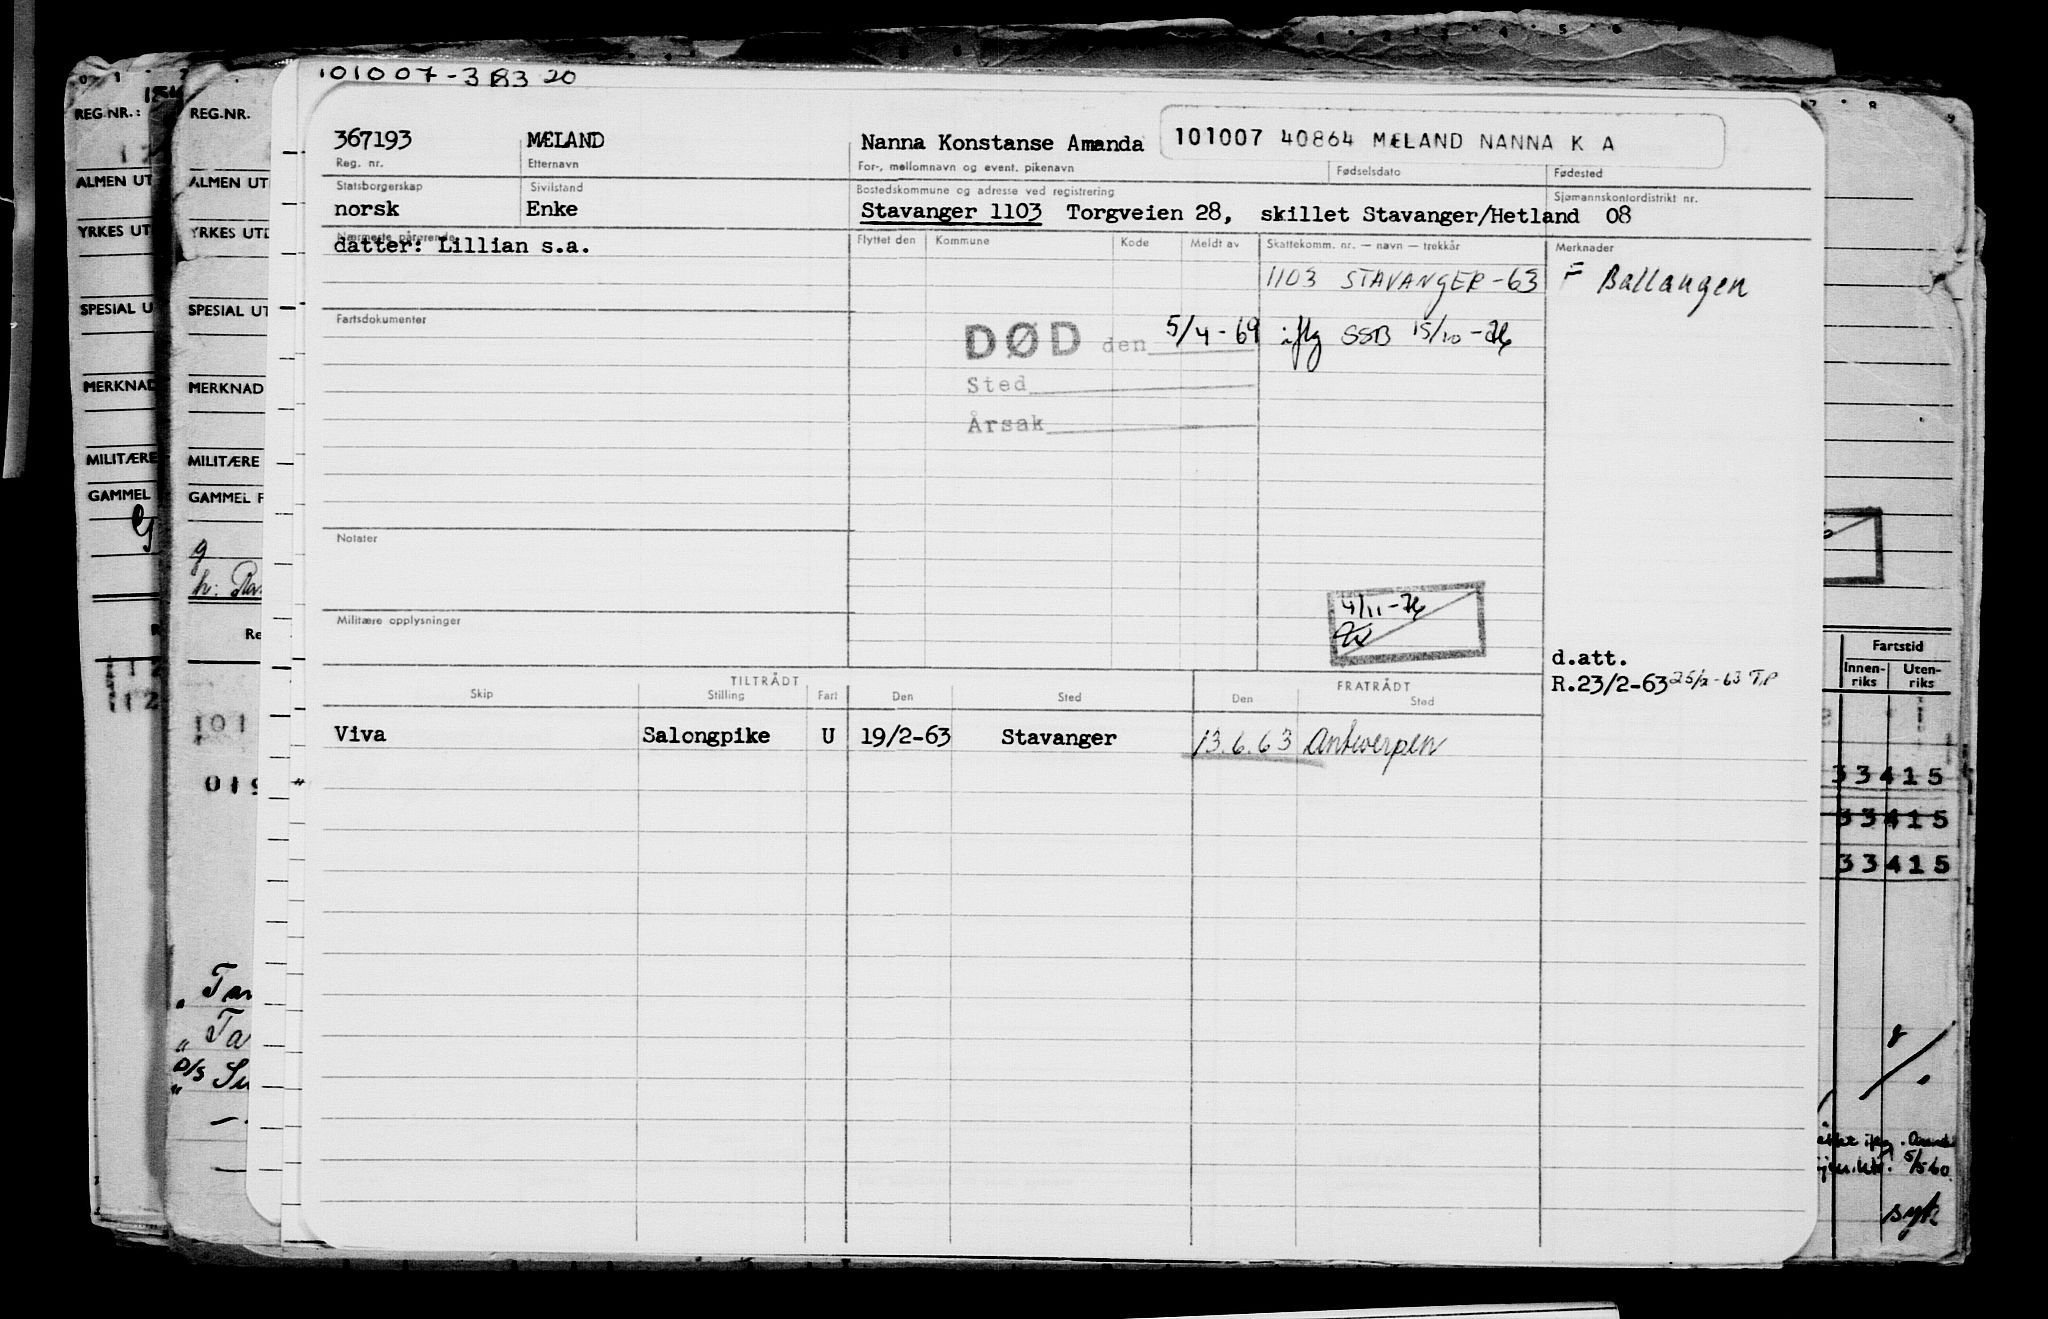 101007-38320
367193 MÆLAND Nanna Konstanse Amanda 101007 40864 MÆLAND NANNA K A
Reg. nr. Etternavn For-, mellomnavn og event. pikenavn Fødselsdato Fødested
Statsborgerskap Sivilstand Bostedskommune og adresse ved registrering Sjømannskontordistrikt nr.
norsk Enke Stavanger 1103 Torgveien 28, skillet Stavanger/Hetland 08
Nærmeste pårørende Flyttet den Kommune Kode Meldt av Skattekomm. nr. — navn — trekkår Merknader
datter: Lillian s.a.
1103 STAVANGER-63 F Ballangen
Fartsdokumenter
DØD den 5/4-69 iflg SSB 15/10-76
Sted
Årsak
Notater
4/11-76
Militære opplysninger
d.att.
R.23/2-63 25/2-63 T.P
TILTRÅDT FRATRÅDT
Skip Stilling Fart Den Sted Den Sted
Viva Salongpike U 19/2-63 Stavanger 13.6.63 Antwerpen
REG.NR.:
ALMEN UT
YRKES UT
SPESIAL U
MERKNAD
MILITÆRE
GAMMEL
REG.NR.
ALMEN UT
YRKES UTD
SPESIAL UT
MERKNAD
MILITÆRE
GAMMEL F
g
h:
Re
101
019
Ta
D/S
Fartstid
Innen-riks Uten-riks
33415
33415
33415
5/5 60
syk